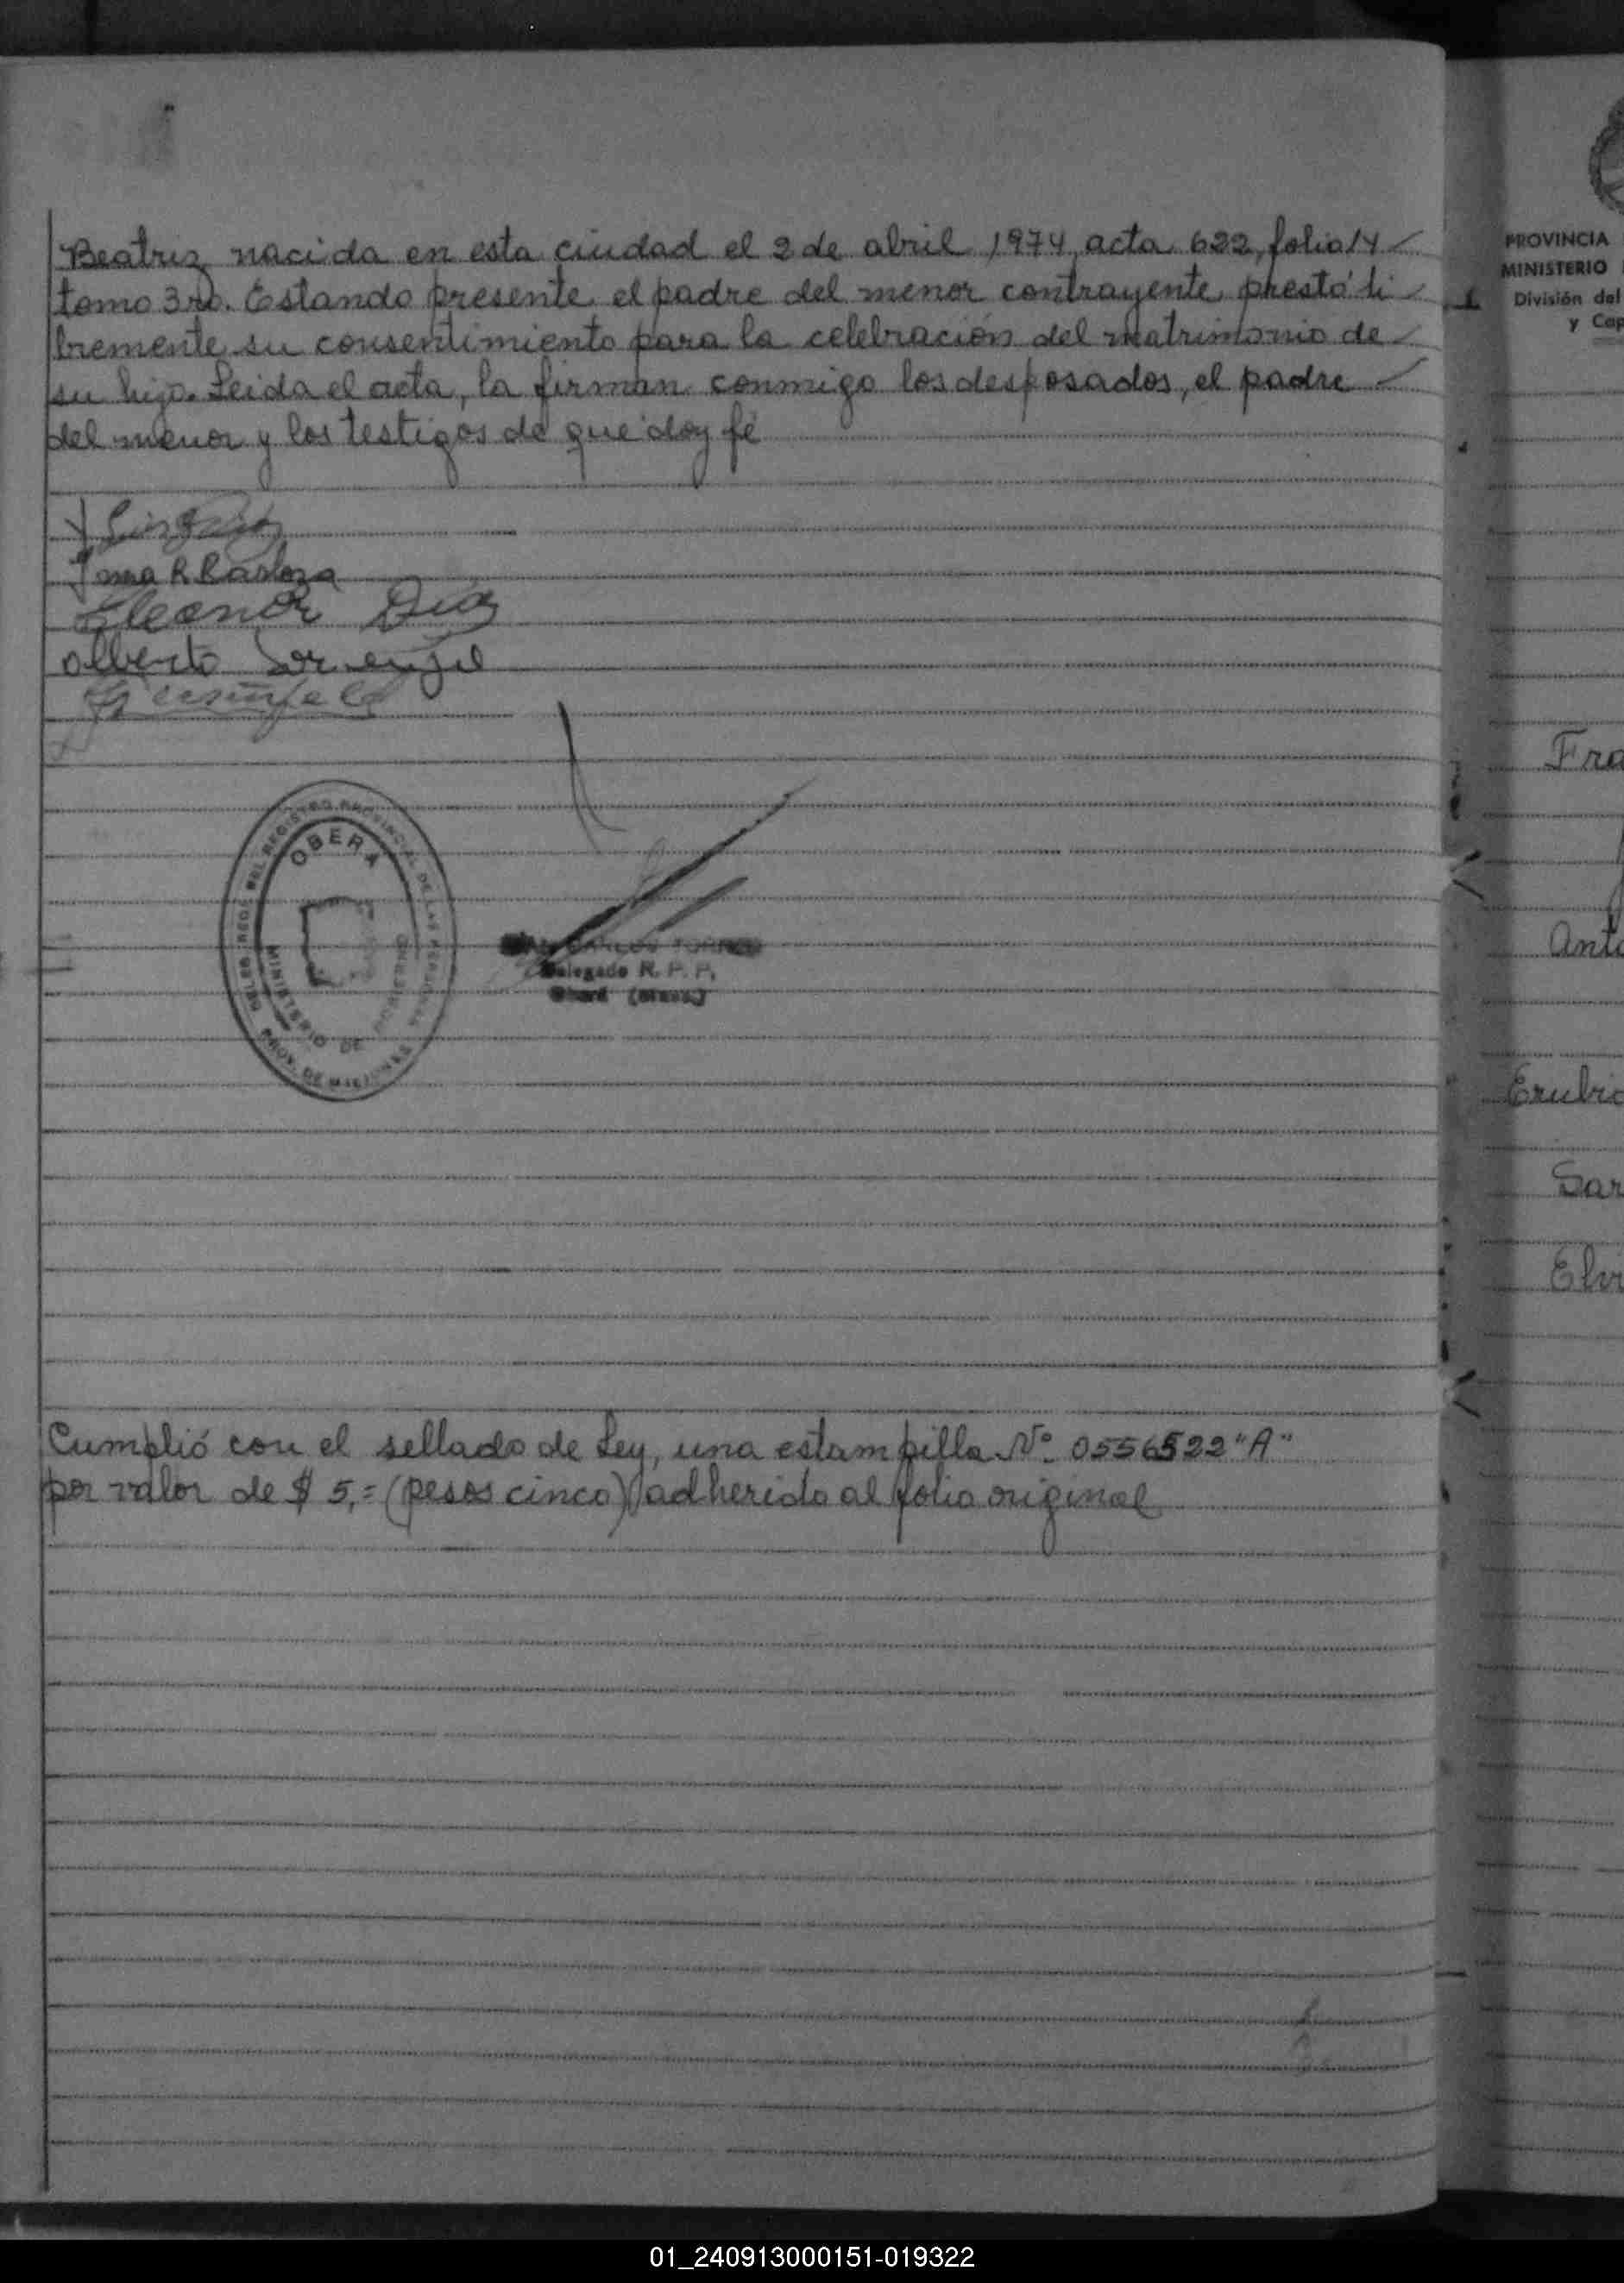 Beatriz nacida en esta ciudad el 2 de abril 1974, acta 622, folio 14
tomo 3ro. Estando presente el padre del menor contrayente, prestó li
bremente su consentimiento para la celebración del matrimonio de
su hijo. Leida el acta, la firman conmigo los desposados, el padre
del menor y los testigos de que doy fé
Eleonor
Alberto
OBERA
MINISTERIO DE GOBIERNO
PROV. DE MISIONES
CARLOS TORRES
Delegado R. P. P.
Oberá (Mnes.)
Cumplió con el sellado de Ley, una estampilla Nº 0556522 "A"
por valor de $ 5,= (pesos cinco) adherido al folio original
PROVINCIA
MINISTERIO
División del
y Cap
Fra
Anto
Erubi
Sar
Elvi
01_240913000151-019322